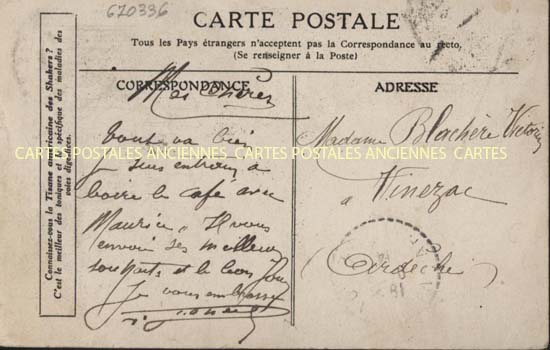 670336
CARTE POSTALE
Tous les Pays étrangers n'acceptent pas la Correspondance au recto.
(Se renseigner à la Poste)
Connaissez-vous la Tisane américaine des Shakers?
C'est le meilleur des toniques et le spécifique des maladies des
voies digestives.
CORRESPONDANCE
Mes Chères
Tout va bien
Je suis entrain à
boire le café avec
Maurice. Il vous
envoit ses meilleurs
souhaits et le bon Jour
Je vous embrasse
ADRESSE
Madame Blachère Victorin
à Vinezac
Ardèche
CARTES POSTALES ANCIENNES CARTES POSTALES ANCIENNES CARTES